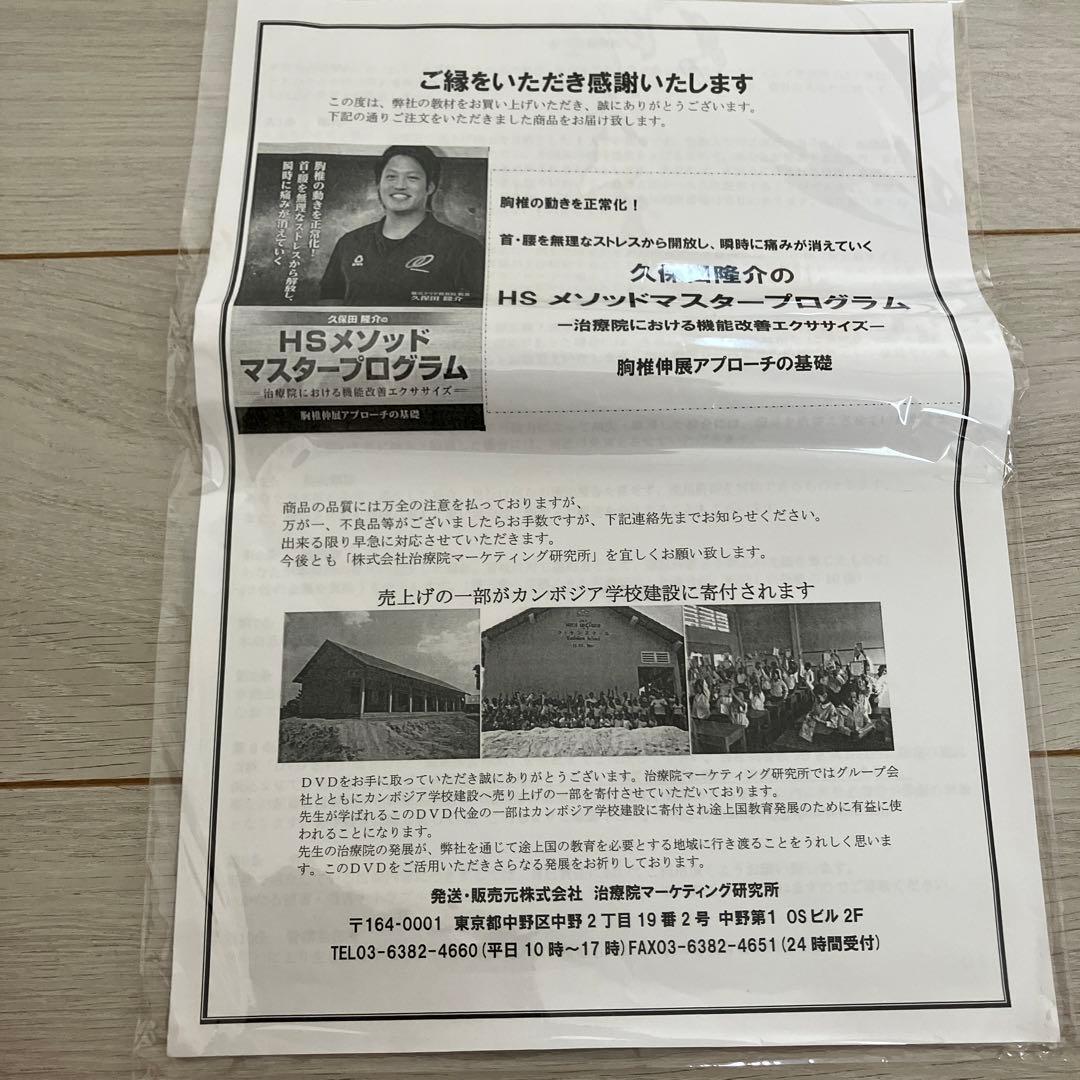 ご縁をいただき感謝いたします
この度は、弊社の教材をお買い上げいただき、誠にありがとうございます。
下記の通りご注文をいただきました商品をお届け致します。
胸椎の動きを正常化！
首・腰を無理なストレスから解放し、
瞬時に痛みが消えていく
久保田 隆介
久保田 隆介の
HSメソッド
マスタープログラム
治療院における機能改善エクササイズ
胸椎伸展アプローチの基礎
胸椎の動きを正常化！
首・腰を無理なストレスから開放し、瞬時に痛みが消えていく
久保田隆介の
HS メソッドマスタープログラム
―治療院における機能改善エクササイズ―
胸椎伸展アプローチの基礎
商品の品質には万全の注意を払っておりますが、
万が一、不良品等がございましたらお手数ですが、下記連絡先までお知らせください。
出来る限り早急に対応させていただきます。
今後とも「株式会社治療院マーケティング研究所」を宜しくお願い致します。
売上げの一部がカンボジア学校建設に寄付されます
ＤＶＤをお手に取っていただき誠にありがとうございます。治療院マーケティング研究所ではグループ会
社とともにカンボジア学校建設へ売り上げの一部を寄付させていただいております。
先生が学ばれるこのＤＶＤ代金の一部はカンボジア学校建設に寄付され途上国教育発展のために有益に使
われることになります。
先生の治療院の発展が、弊社を通じて途上国の教育を必要とする地域に行き渡ることをうれしく思いま
す。このＤＶＤをご活用いただきさらなる発展をお祈りしております。
発送・販売元株式会社 治療院マーケティング研究所
〒164-0001 東京都中野区中野２丁目19番２号 中野第１ OSビル 2F
TEL03-6382-4660(平日 10 時～17 時)FAX03-6382-4651(24 時間受付)